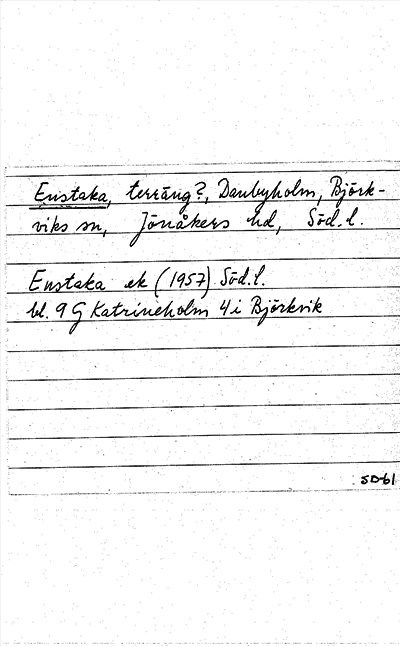 Enstaka, terräng?, Danbyholm, Björk-
viks sn, Jönåkers hd, Söd. l.
Enstaka ek (1957) Söd. l.
bl. 9 G Katrineholm 4 i Björkvik
SD 61